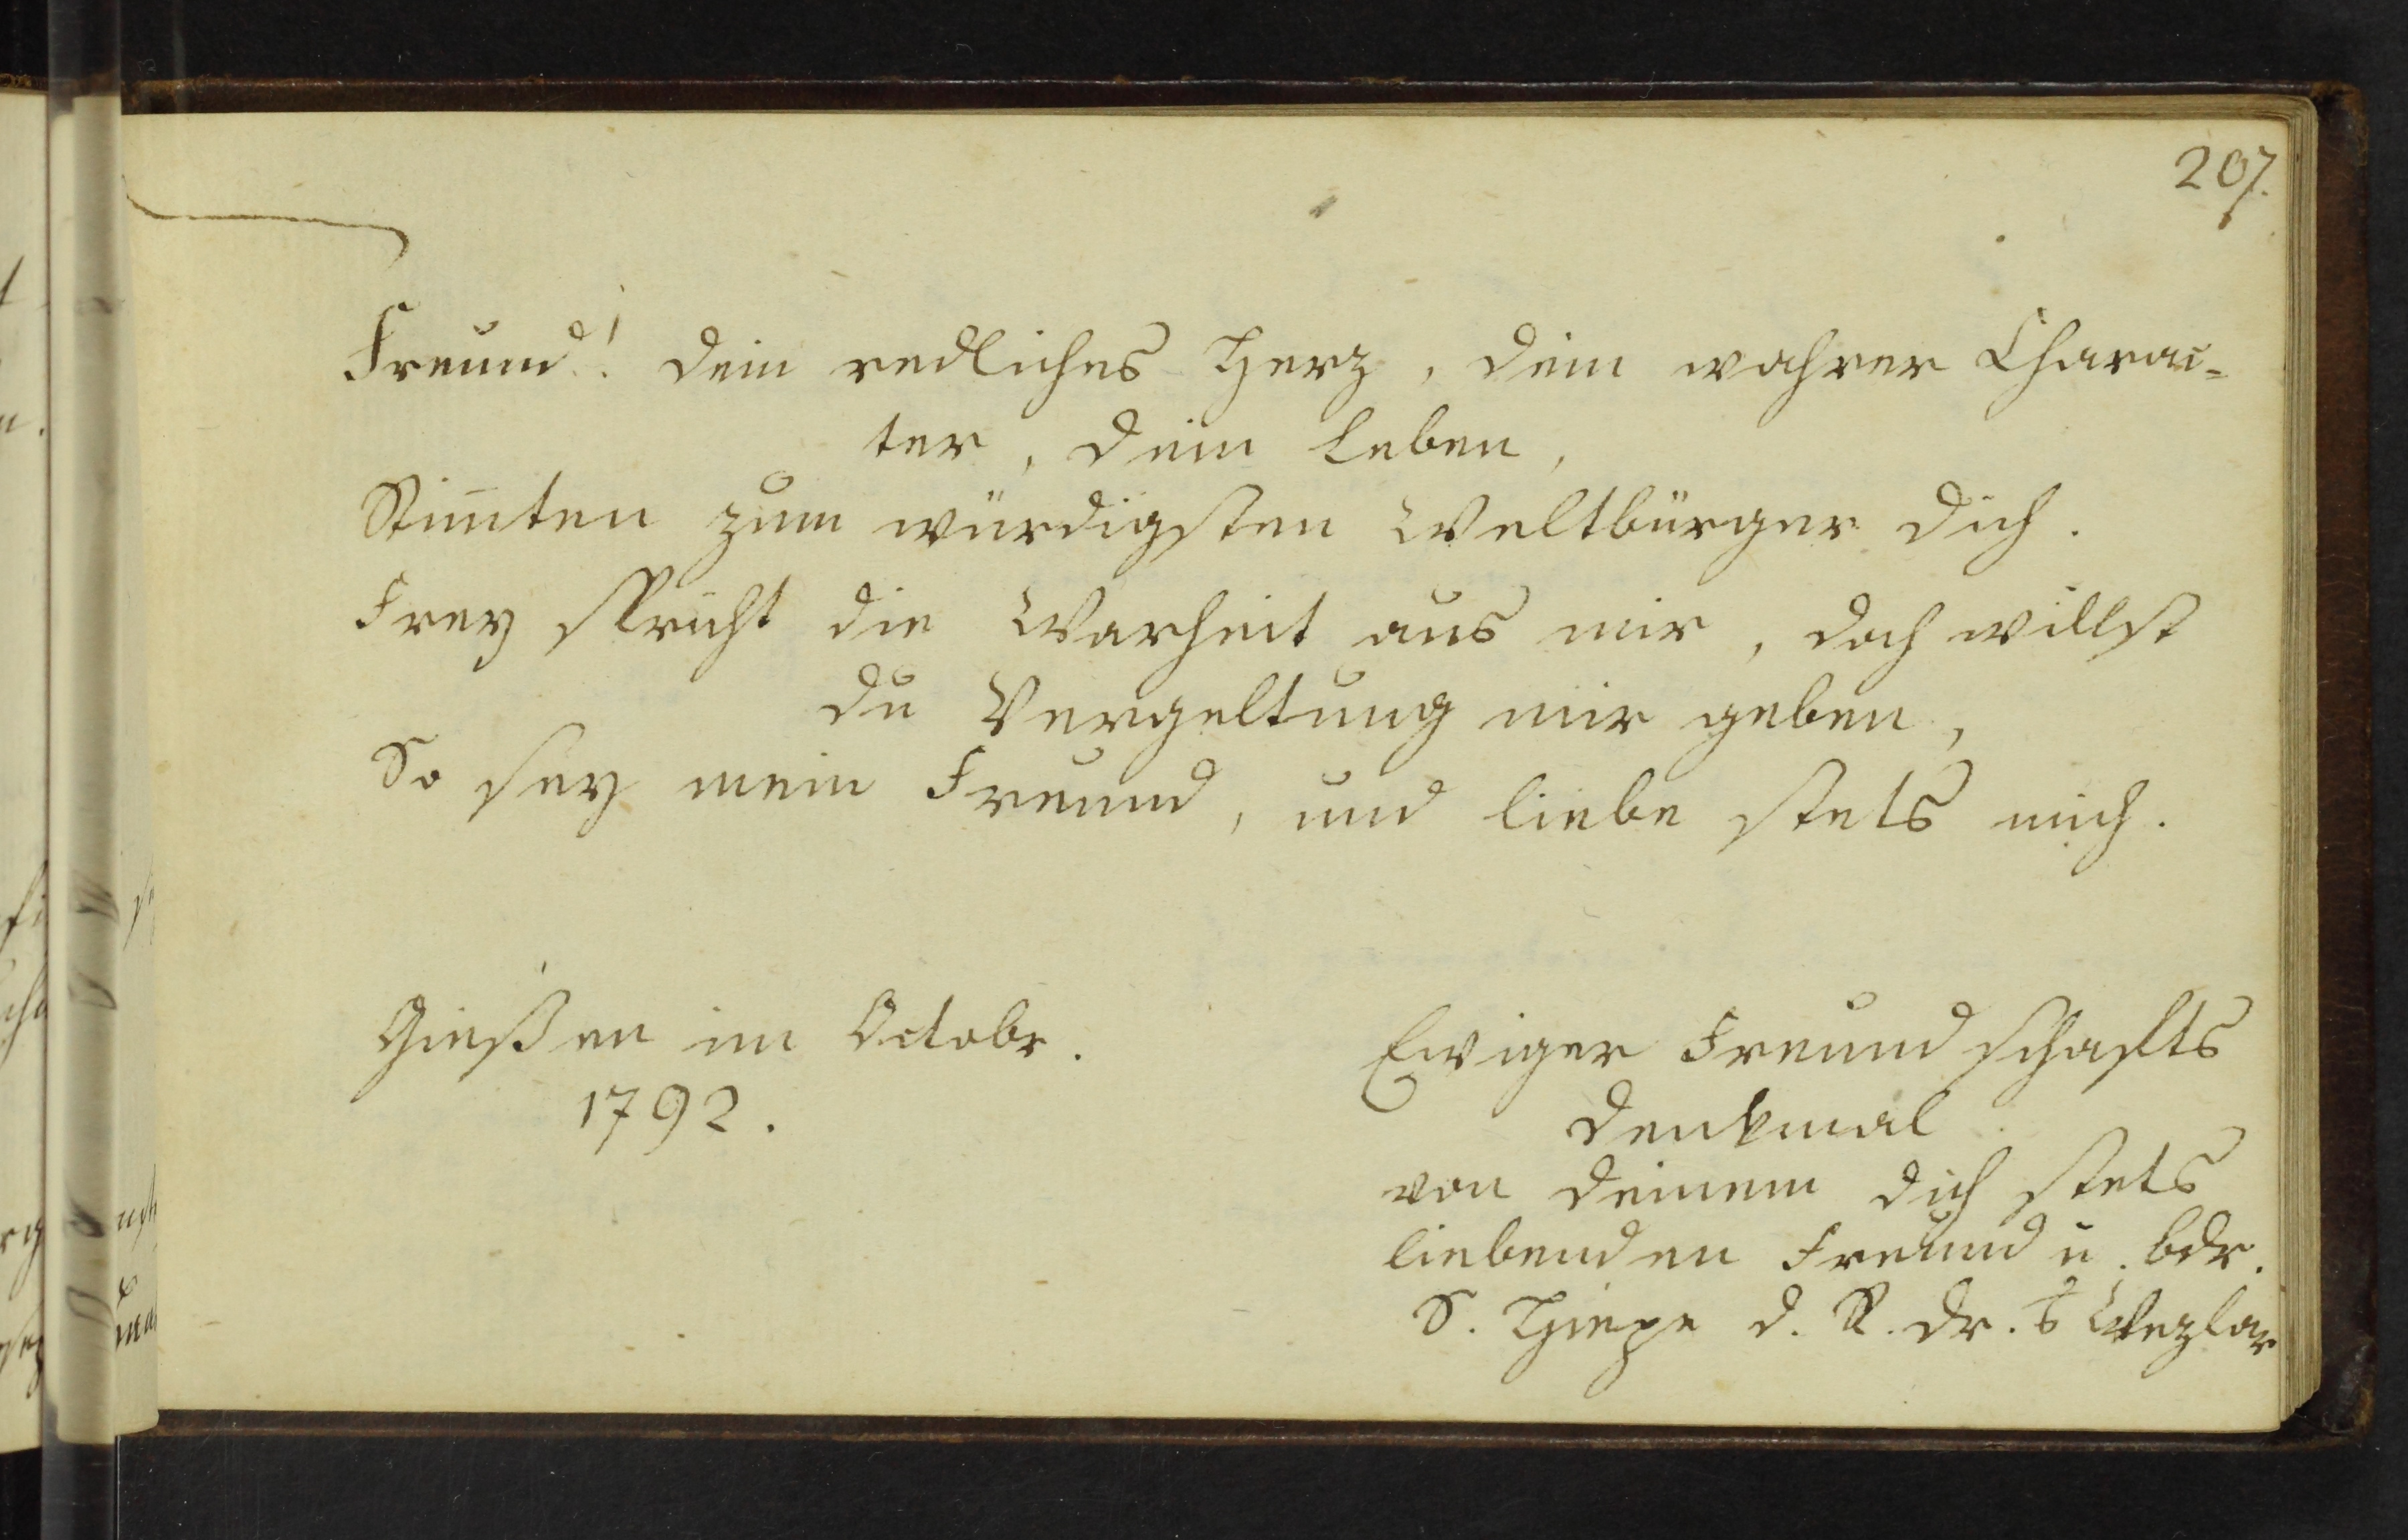 207.
Freund! dein redliches Herz, dein wahrer Charac-
ter, dein Leben,
Stim̄ten zum würdigsten Weltbürger dich.
Frey spricht die Warheit aus mir, doch willst
du Vergeltung mir geben,
So sey mein Freund, und liebe stets mich.
Gießen im Octobr.
1792.
Ewiger Freundschafts
denkmal
von deinem dich stets
liebenden Freund u. bdr.
S. d. R. Dr. Wezlar